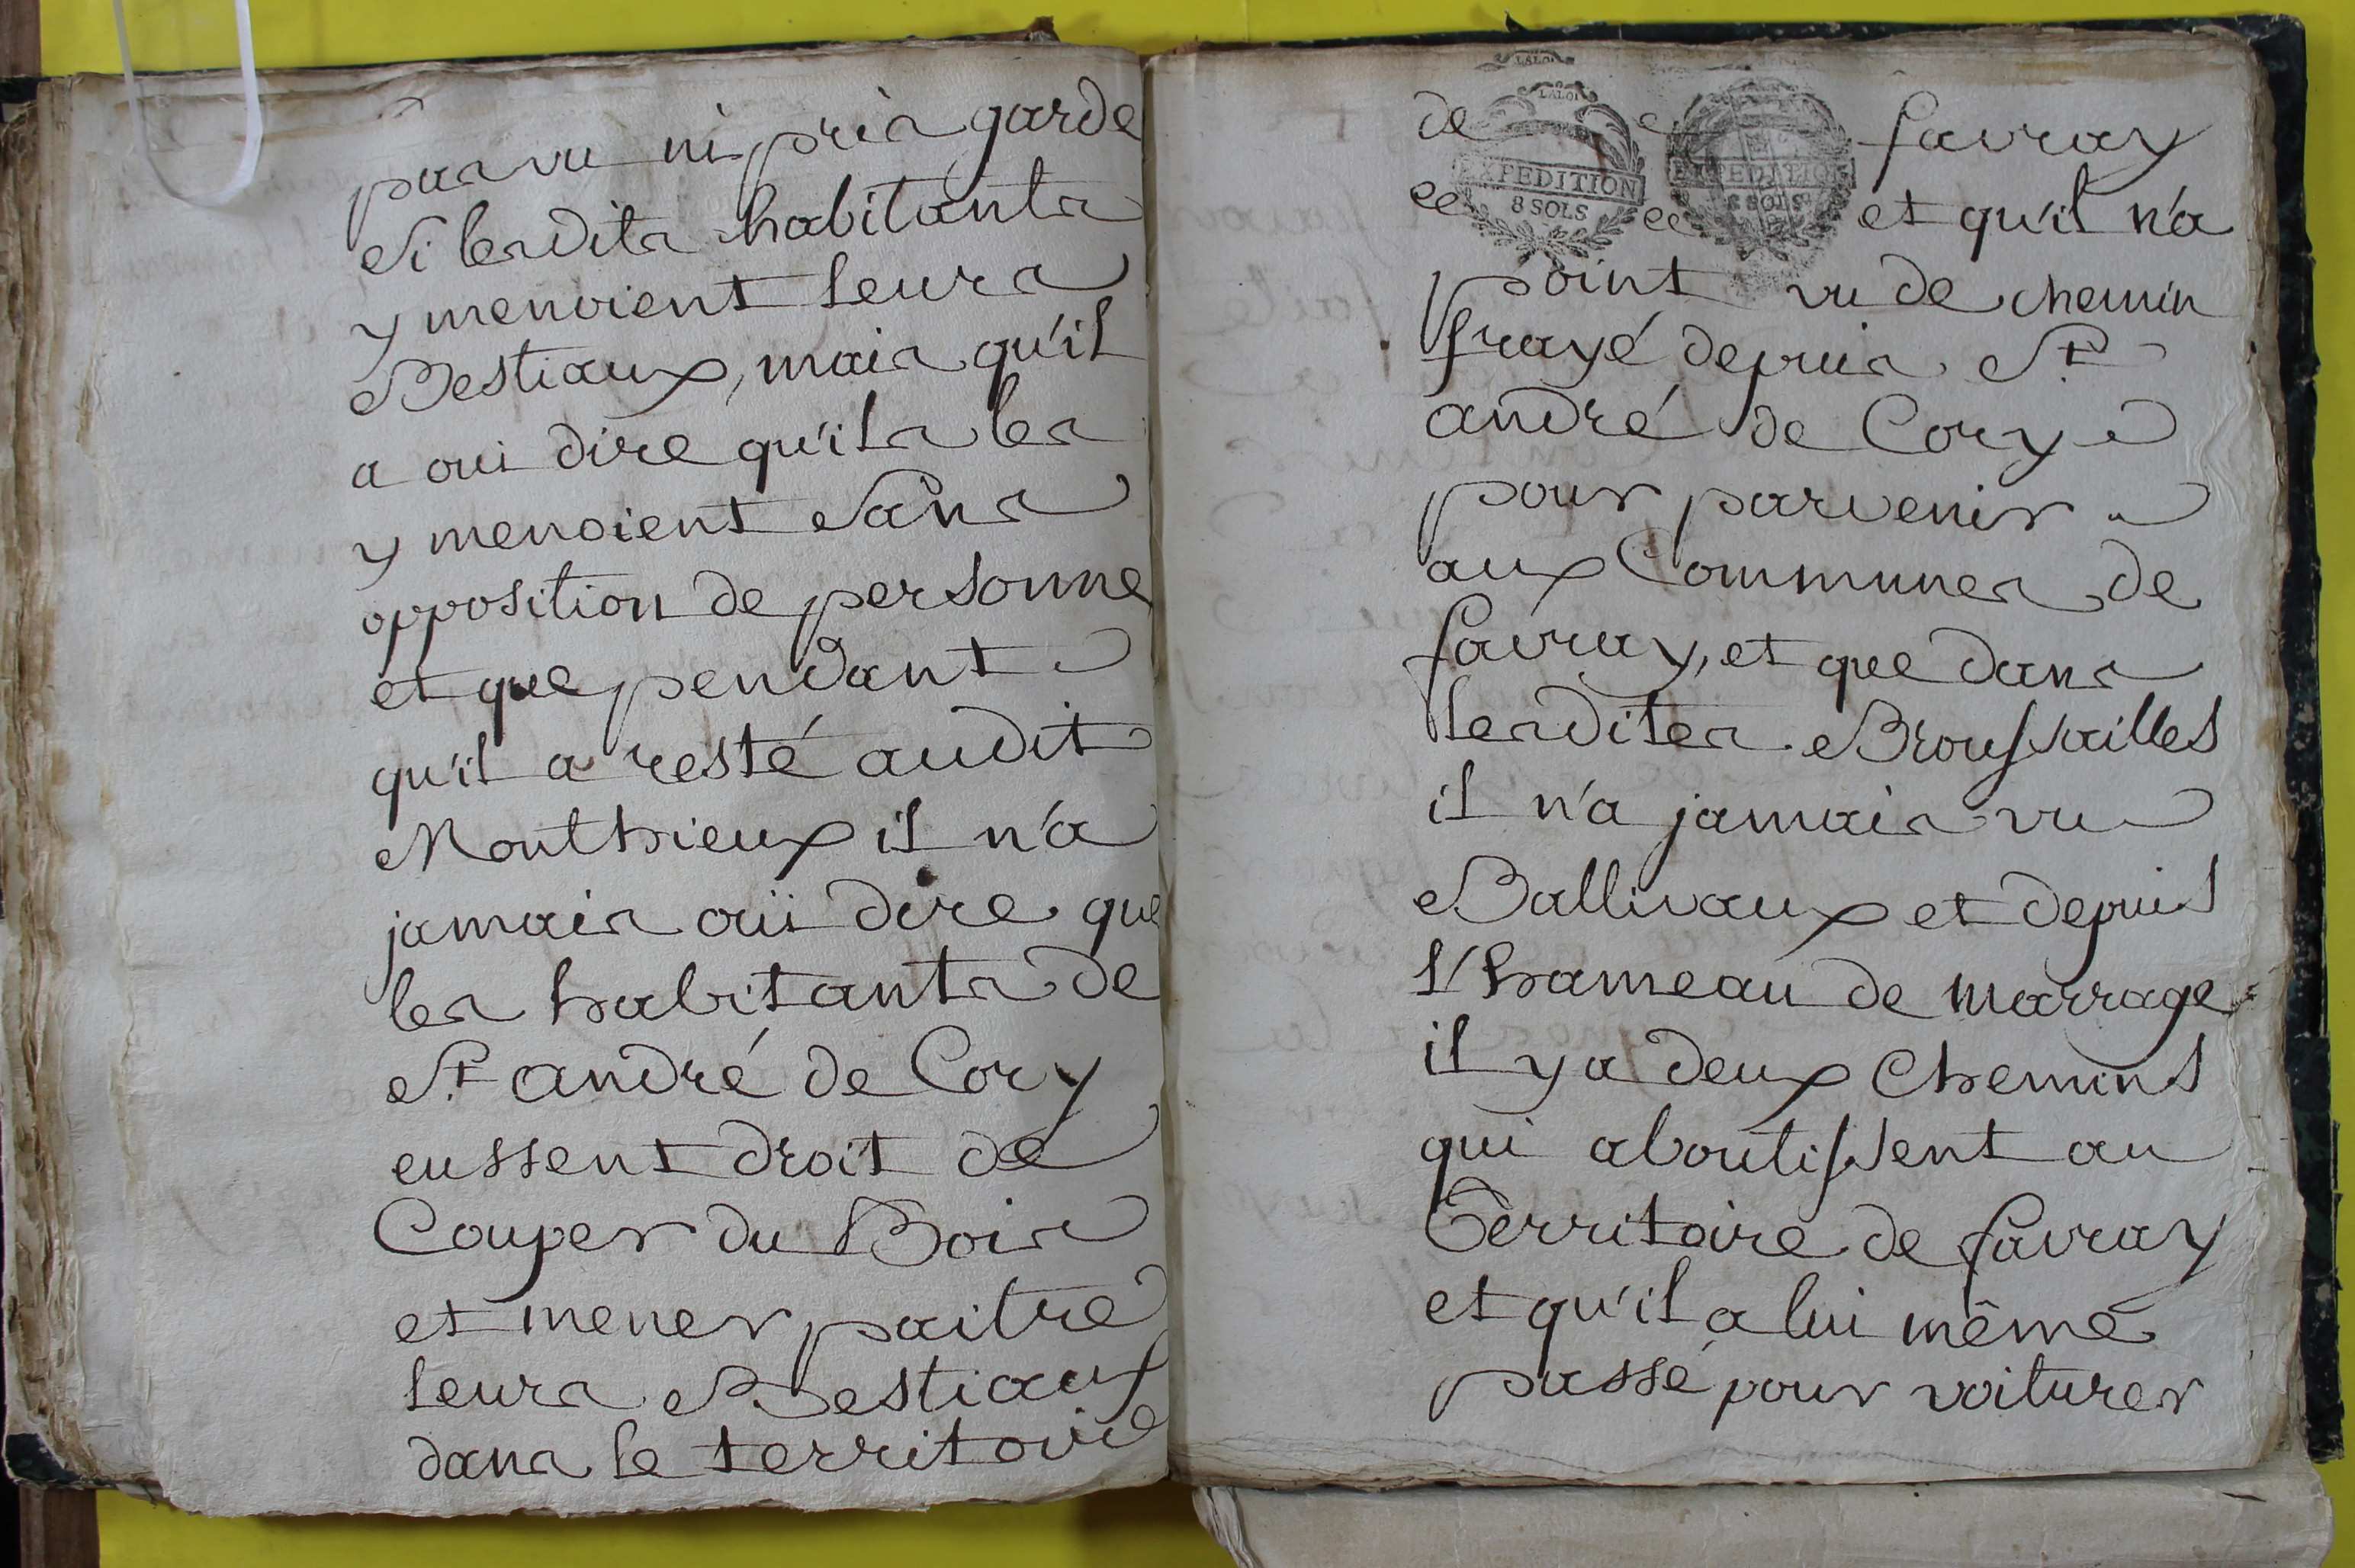 pas vu ni pris garde
si lesdits habitants
y menoient leurs
Bestiaux, mais qu'il
a oui dire qu'ils les
y menoient sans
opposition de personne
et que pendant
qu'il a resté audit
Monthieux il n'a
jamais oüi dire que
les habitants de
St. andré de Cory
eussent droit de
Couper du Bois
et mener paitre
leurs Bestiaux
dans le territoire
LALOI
LALOI
de favray
EXPEDITION
8 SOLS
EXPEDITION
8 SOLS
et qu'il n'a
point vu de chemin
frayé depuis St.
andré de Cory
pour parvenir
aux Communes de
favray, et que dans
lesdites Broussailles
il n'a jamais vu
Ballivaux et depuis
l'hameau de marrage
il y a deux Chemins
qui aboutissent au
Territoire de favray
et qu'il a lui même
passé pour voiturer